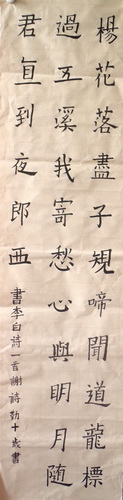 楊花落盡子規啼聞道龍標
過五溪我寄愁心與明月隨
君直到夜郎西
書李白詩一首謝詩十歲書